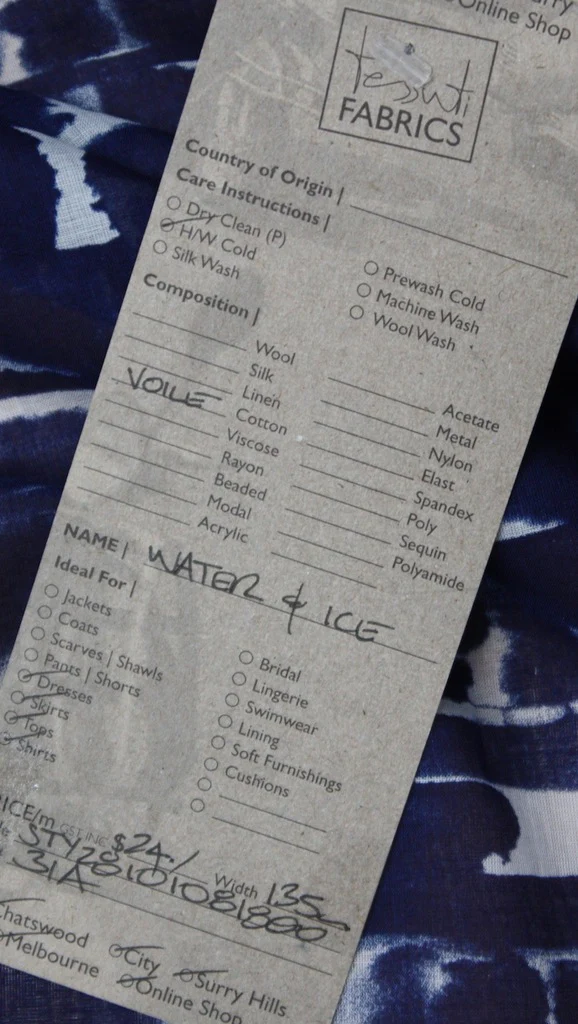 Online Shop
tessuti
FABRICS
Country of Origin |
Care Instructions |
Dry Clean (P)
H/W Cold
Silk Wash
Prewash Cold
Machine Wash
Wool Wash
Composition |
Wool
Silk
Linen
VOILE Cotton
Viscose
Rayon
Beaded
Modal
Acrylic
Acetate
Metal
Nylon
Elast
Spandex
Poly
Sequin
Polyamide
NAME | WATER & ICE
Ideal For |
Jackets
Coats
Scarves | Shawls
Pants | Shorts
Dresses
Skirts
Tops
Shirts
Bridal
Lingerie
Swimwear
Lining
Soft Furnishings
Cushions
RICE/m GST INC $24./ Width 135
STY28101081800
31A
Chatswood City Surry Hills
Melbourne Online Shop